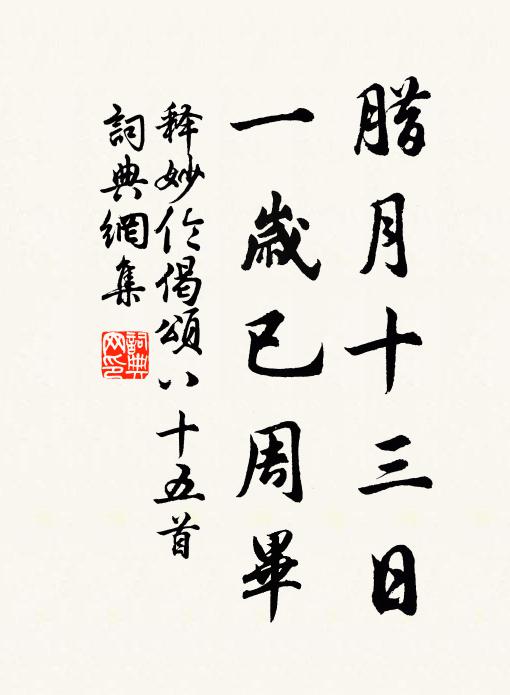 腊月十三日
一歲已周畢
释妙伦偈頌八十五首
詞典網集
詞典网印